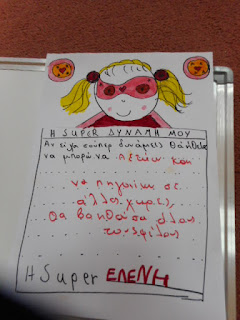 Η SUPER ΔΥΝΑΜΗ ΜΟΥ
Αν είχα σούπερ δυνάμεις θα ήθελα
να μπορώ να Πετάω και
να πηγαίνω σε
άλλες χώρες,
Θα βοηθούσα όλους
τους φίλους
Η Super ΕΛΕΝΗ